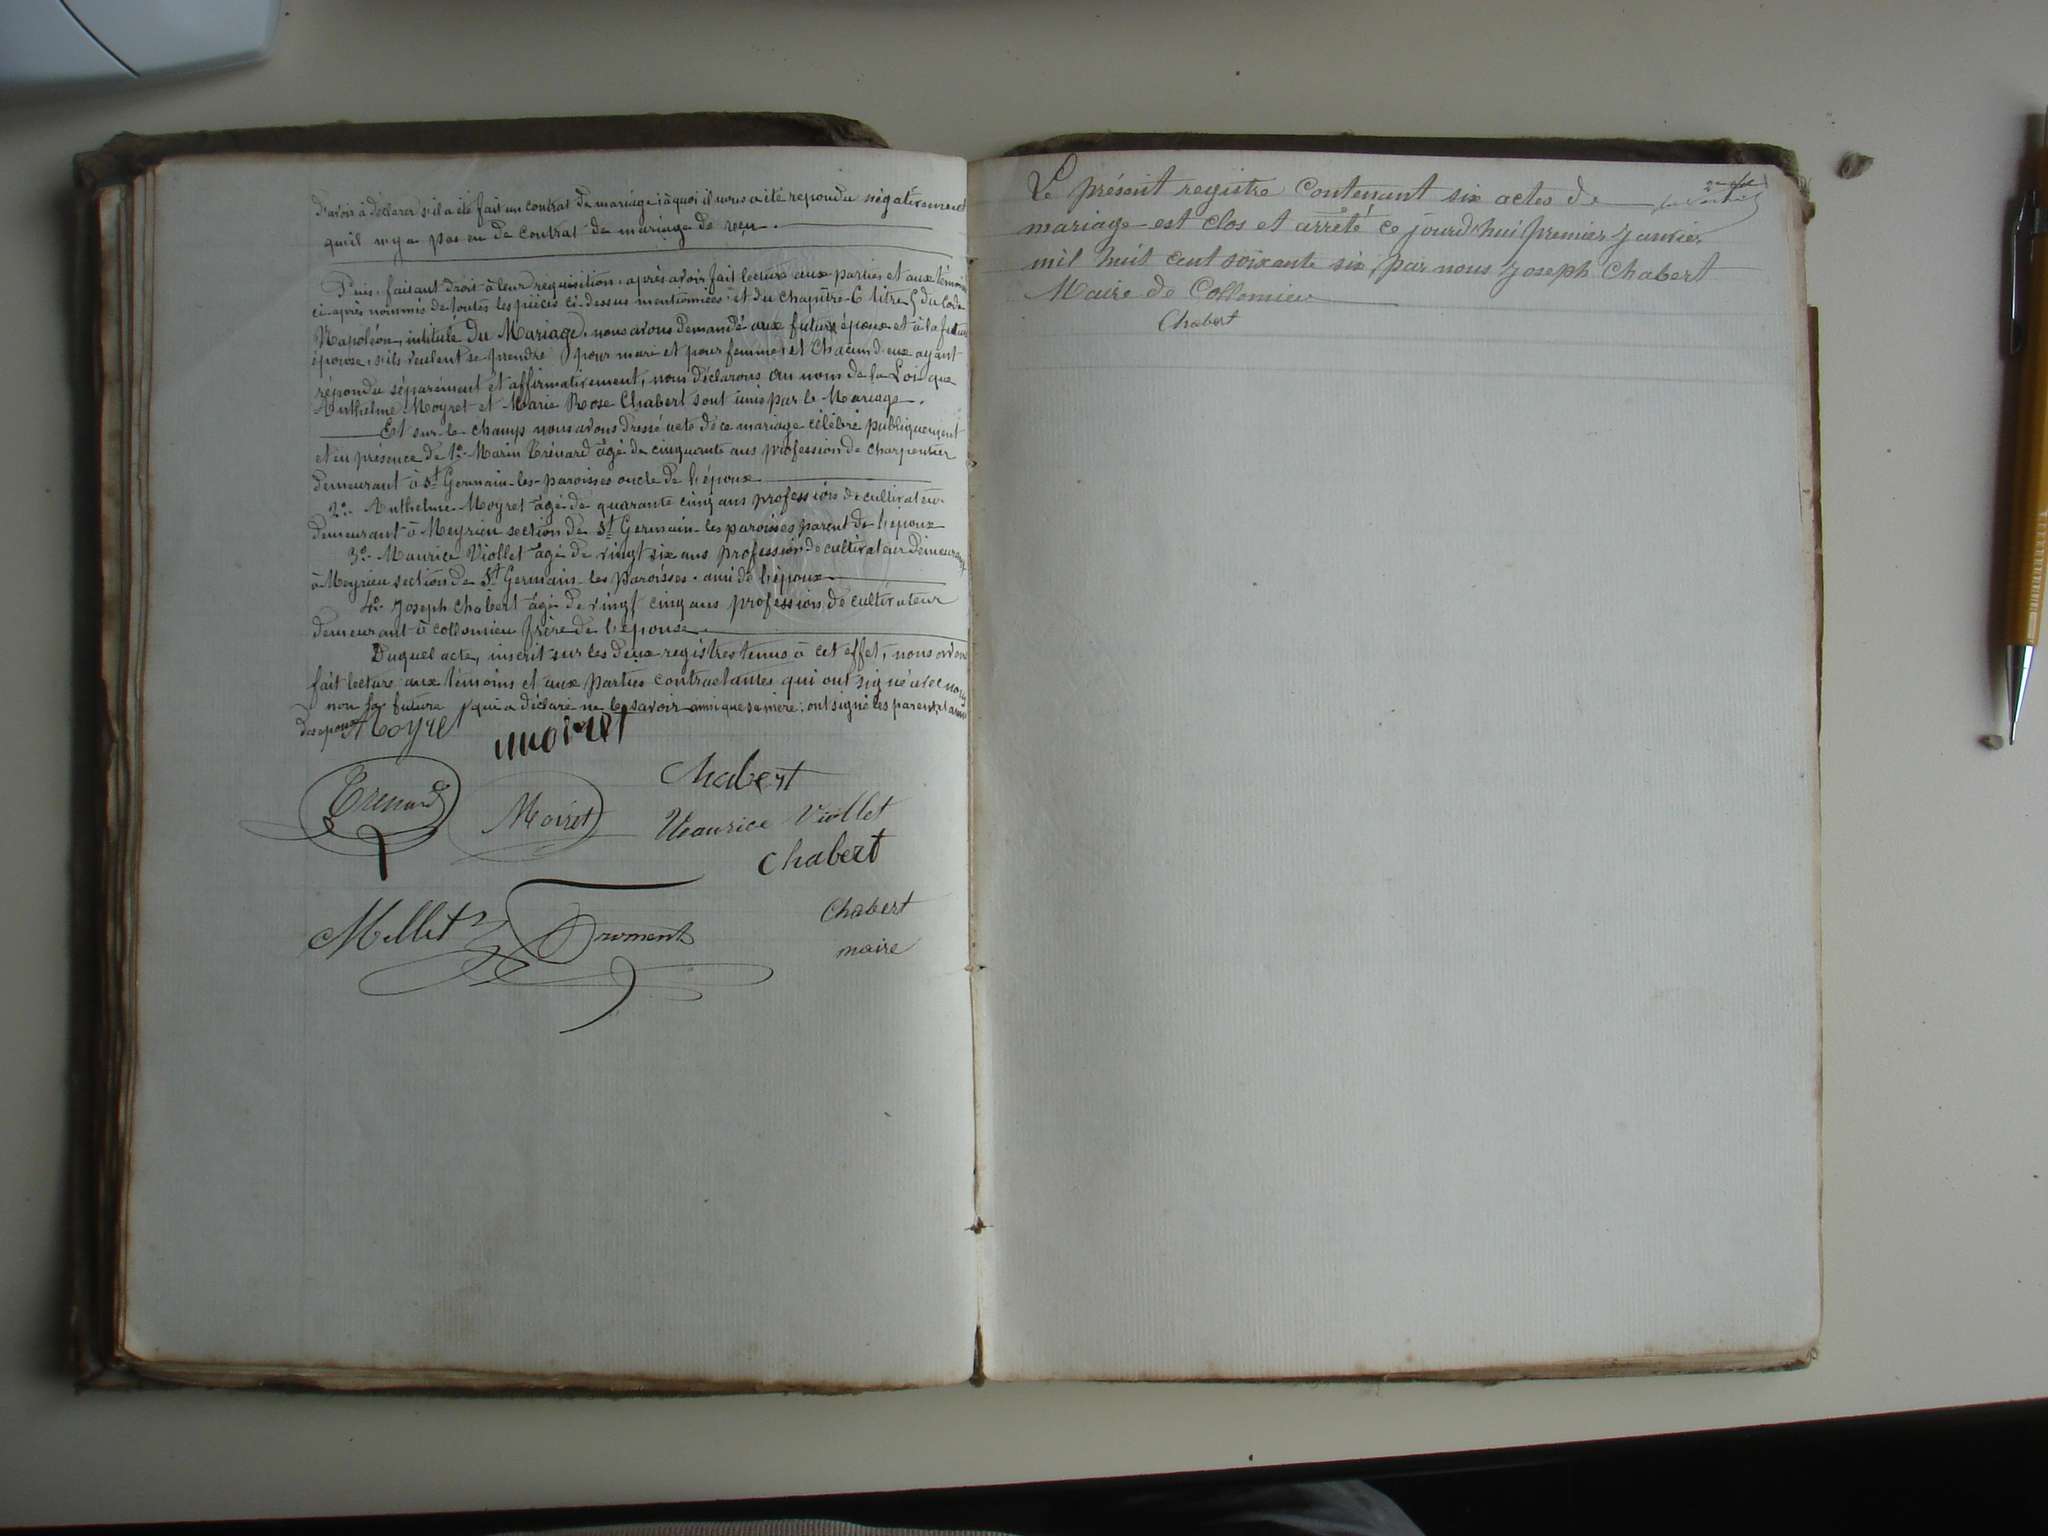 d'avoir à déclarer s'il a été fait un contrat de mariage; à quoi il nous a été repondu négativement
qu'il n'y a pas eu de contrat de mariage de reçu.
Puis, faisant droit à leur requisition, après avoir fait lecture aux parties et aux témoins
ci-après nommés de toutes les pièces ci-dessus mentionnées et du chapitre 6 titre 5 du Code
Napoléon, intitulé du Mariage, nous avons demandé aux future époux et à la future
épouse, s'ils veulent se prendre pour mari et pour femme; et chacun d'eux ayant
répondu séparément et affirmativement, nous déclarons au nom de la Loi que
Anthelme Moyret et Marie Rose Chabert sont unis par le Mariage.
Et sur-le-champ nous avons dressé acte de ce mariage célébré publiquement
et en présence de 1o Marin Trénard âgé de cinquante ans profession de charpentier
demeurant à St Germain-les-paroisses oncle de l'époux
2o Anthelme Moyret âgé de quarante cinq ans profession de cultivateur
demeurant à Meyrieu section de St Germain-les paroisses parent de l'époux
3o Maurice Viollet âgé de vingt six ans profession de cultivateur demeurant
à Meyrieu section de St Germain-les paroisses. ami de l'époux
4o Joseph Chabert âgé de vingt cinq ans profession de cultivateur
demeurant à collomieu frère de l'épouse.
Duquel acte, inscrit sur les deux registres tenus à cet effet, nous avons
fait lecture aux témoins et aux parties contractantes qui ont signé avec nous
non la future qui a déclaré ne le savoir ainsi que sa mère; ont signé les parents et amis
des époux Moyret
moiret
Chabert
Trenard Moiret Maurice Viollet
Chabert
Millet Froment Chabert
maire
Le présent registre contenant six actes de
mariage est clos et arrêté ce jourd'hui premier Janvier
mil huit cent soixante six, par nous Joseph Chabert
Maire de Collomieu
Chabert